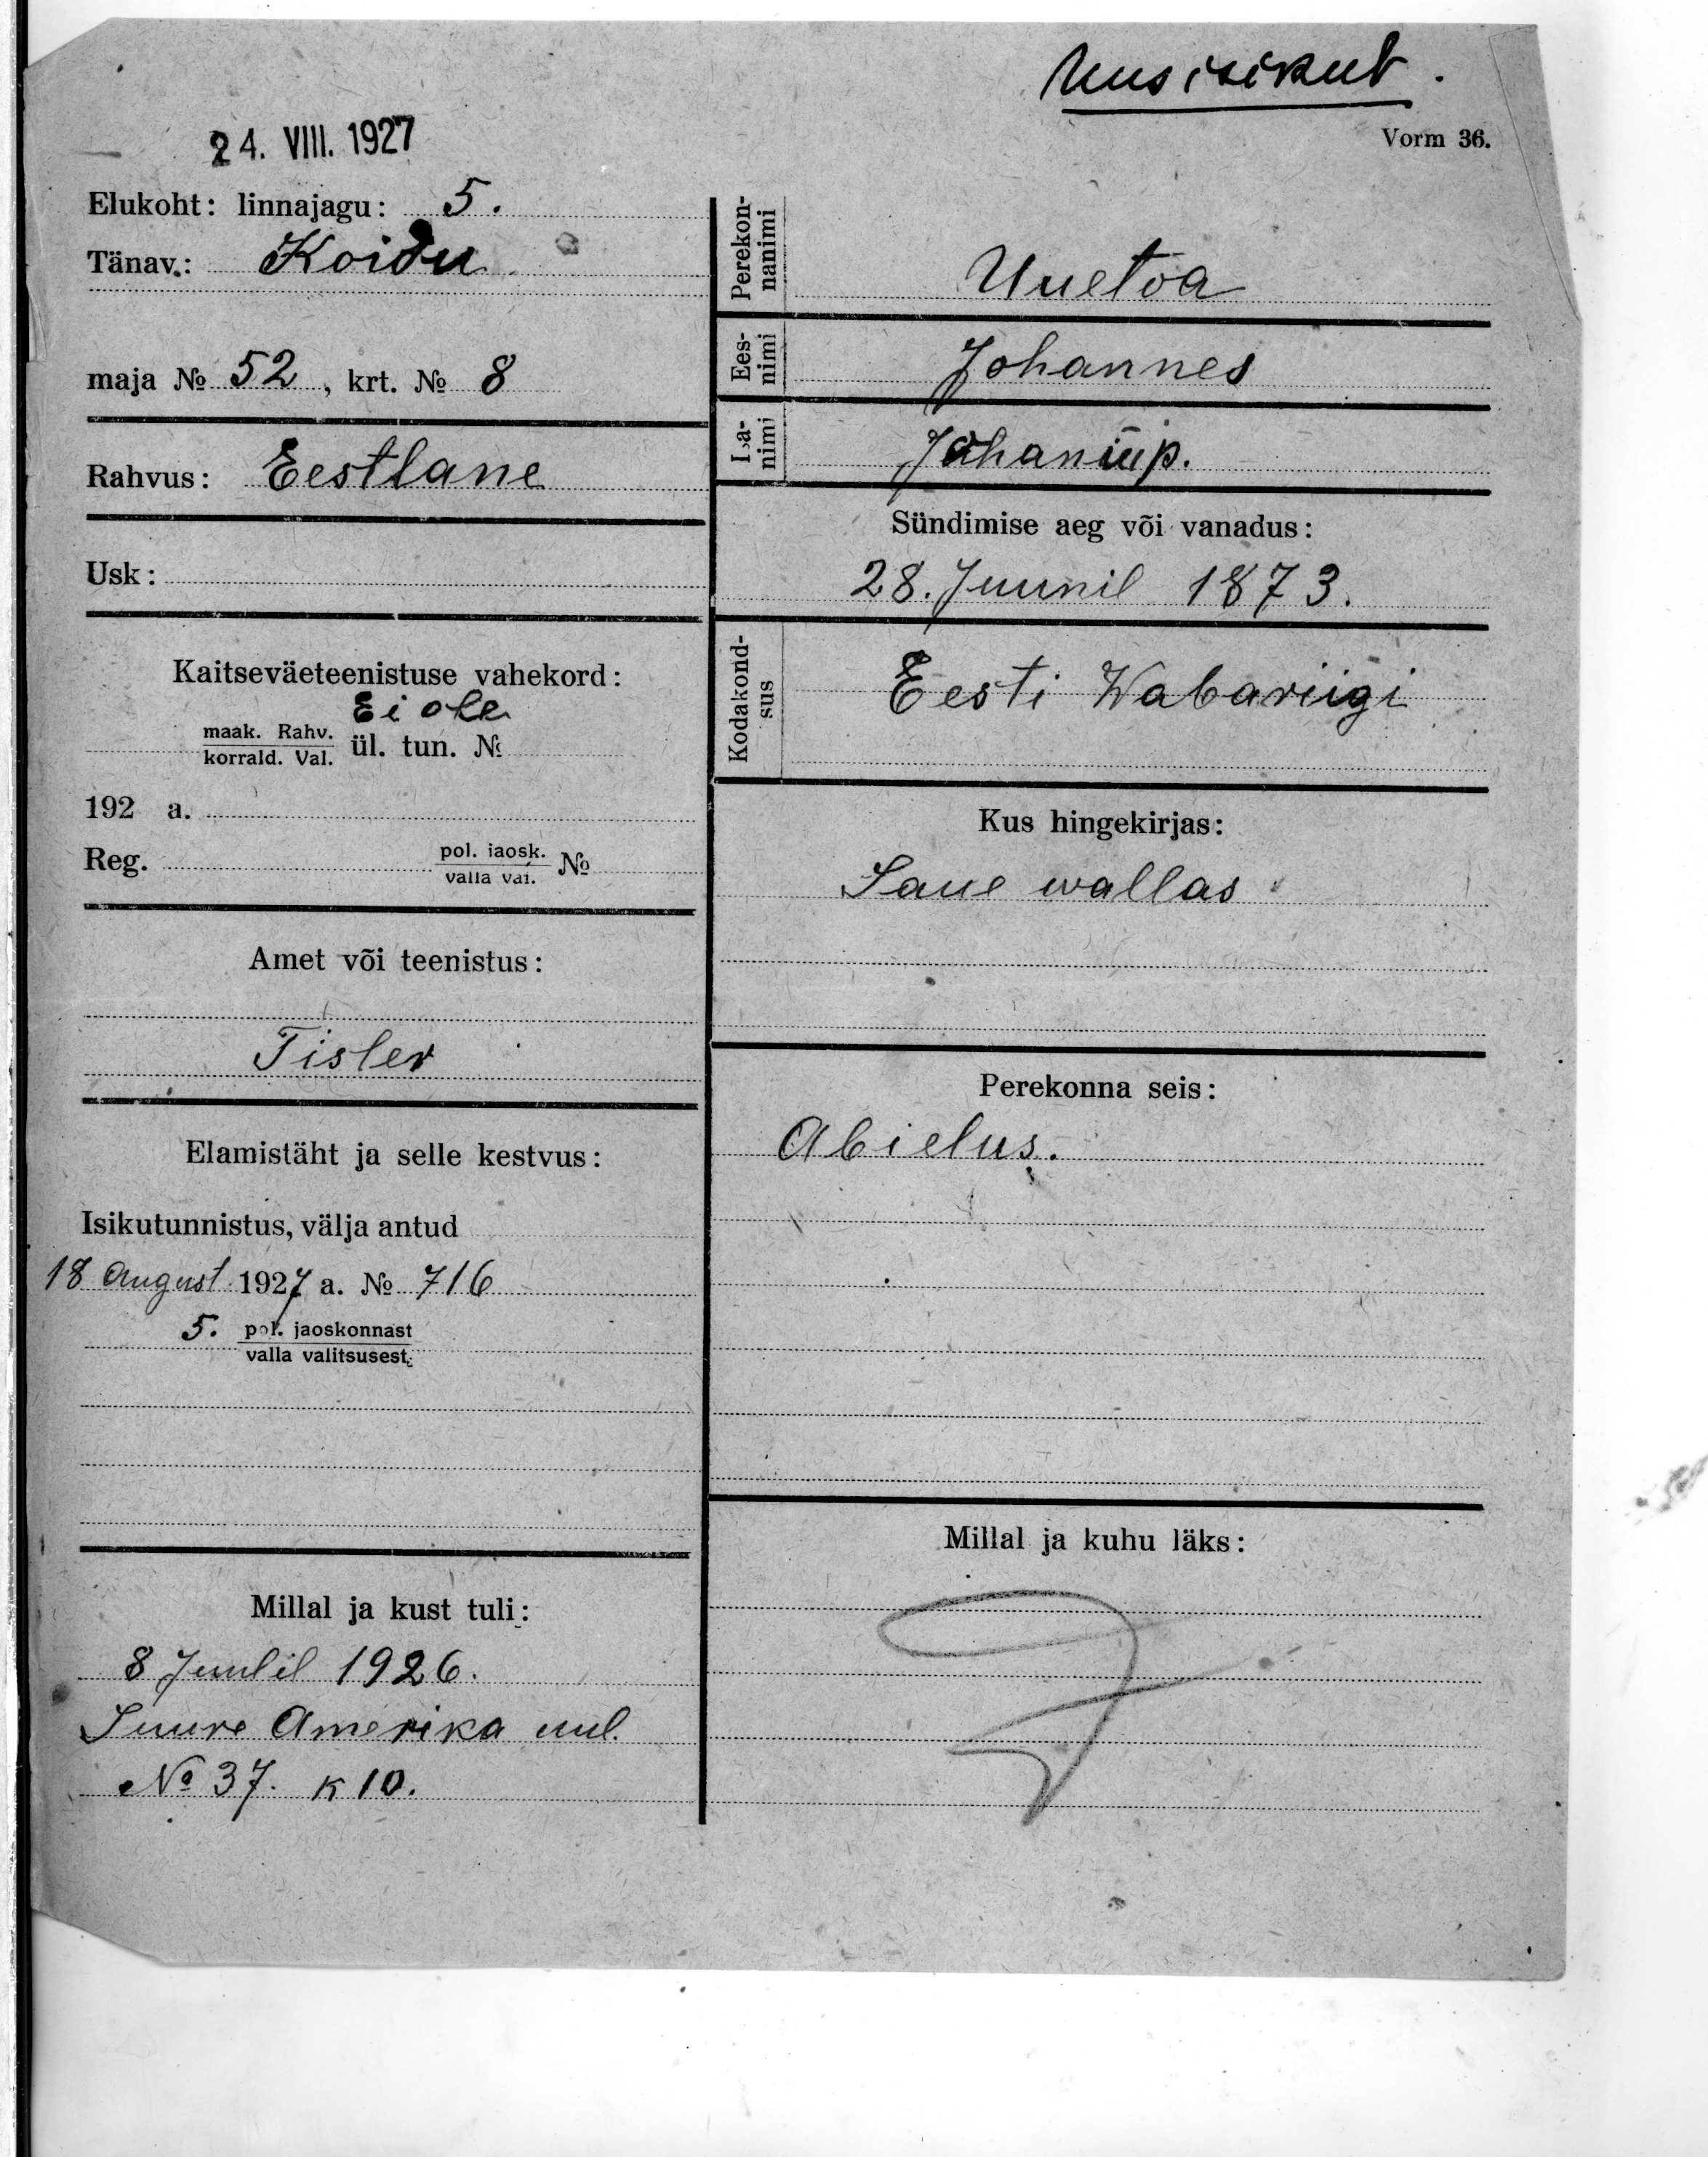 Uus isikut.
Vorm 36.
24. VIII. 1927
Elukoht: linnajagu: 5.
Tänav: Koidu
maja № 52, krt. № 8
Rahvus: Eestlane
Usk:
Kaitseväeteenistuse vahekord:
Ei ole
maak. Rahv.
korrald. Val. ül. tun. №
192 a.
Reg. pol. jaosk. №
valla val.
Amet või teenistus:
Tisler
Elamistäht ja selle kestvus:
Isikutunnistus, välja antud
18 August 1927 a. № 716
5. pol. jaoskonnast
valla valitsusest.
Millal ja kust tuli:
8 Juulil 1926.
Suure Amerika uul.
№ 37. k 10.
Perekon-
nanimi
Uuetoa
Ees-
nimi
Johannes
Isa-
nimi
Juhani p.
Sündimise aeg või vanadus:
28. Juunil 1873.
Kodakond-
sus
Eesti Wabariigi
Kus hingekirjas:
Saue wallas
Perekonna seis:
Abielus.
Millal ja kuhu läks: